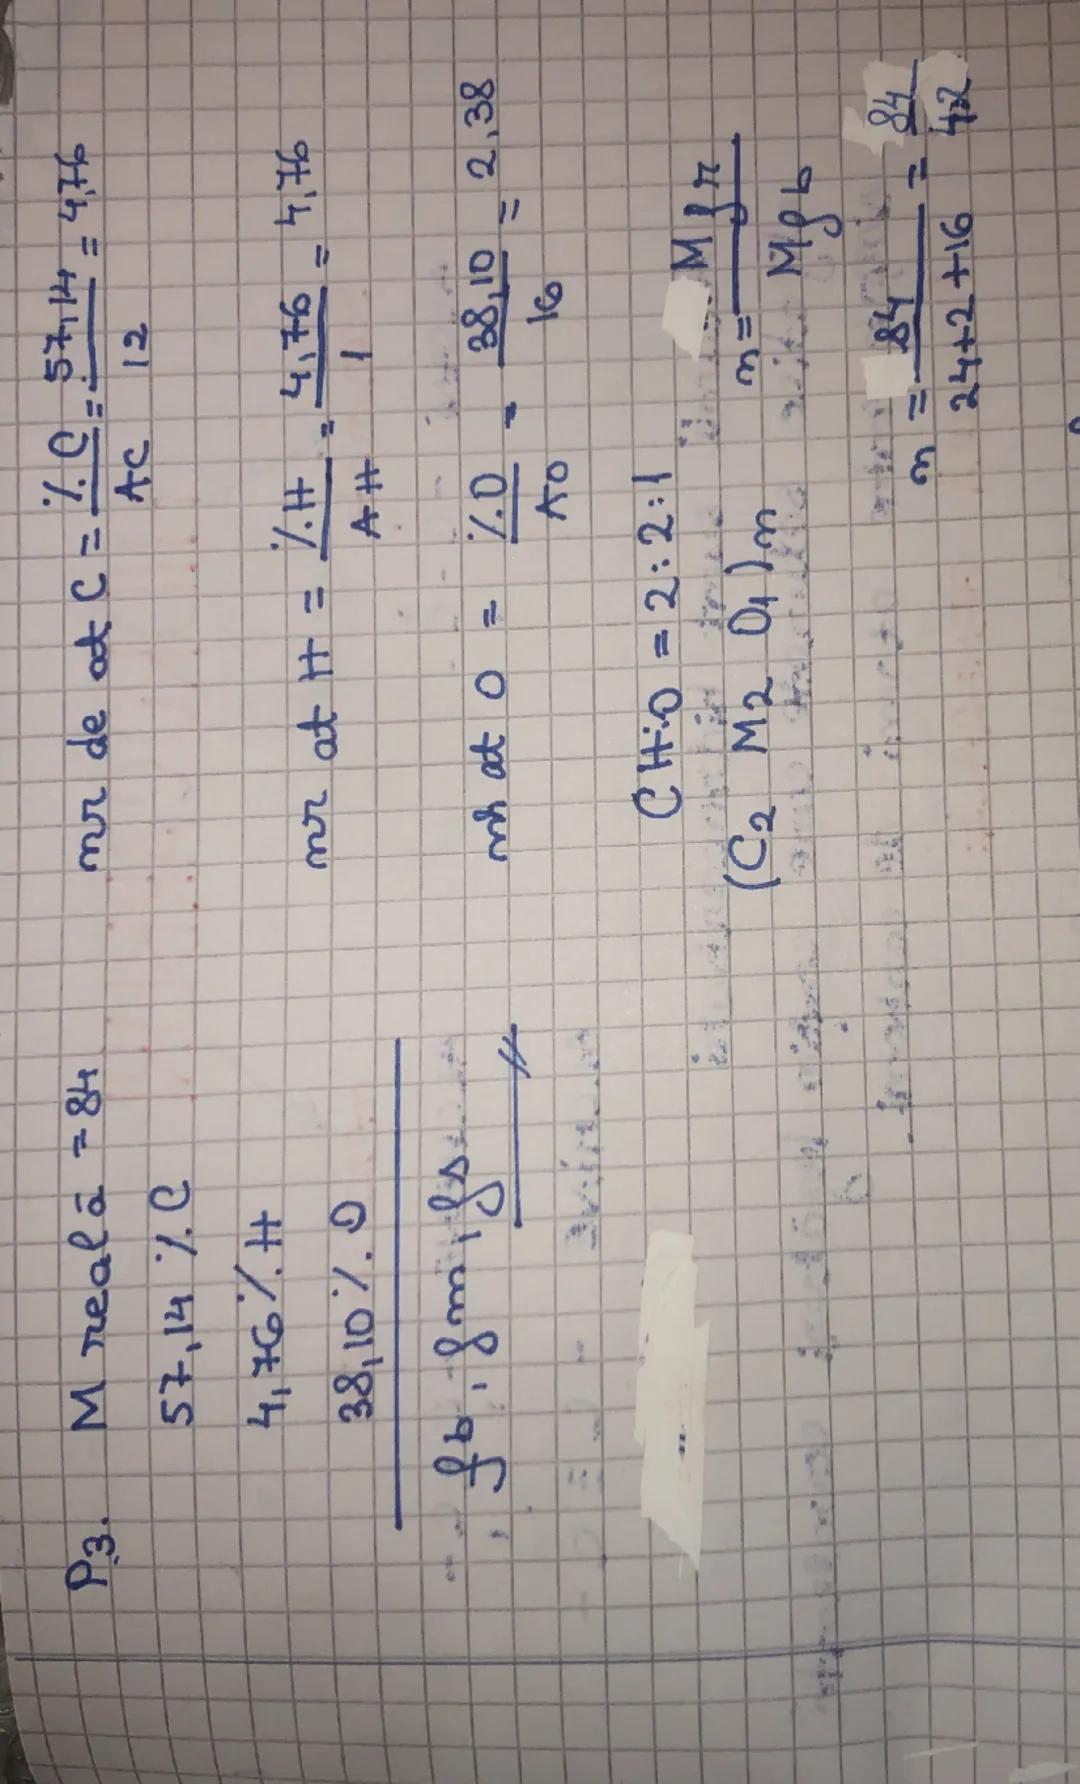 P3. M reală = 84
57,14 % C
4,76 % H
38,10 % O
fb, fm, fs
nr de at C = % C / AC = 57,14 / 12 = 4,76
nr at H = % H / AH = 4,76 / 1 = 4,76
nr at O = % O / AO = 38,10 / 16 = 2,38
C:H:O = 2:2:1
(C2 H2 O1)n
n = Mfr / Mfb
n = 84 / 24+2+16 = 84 / 42